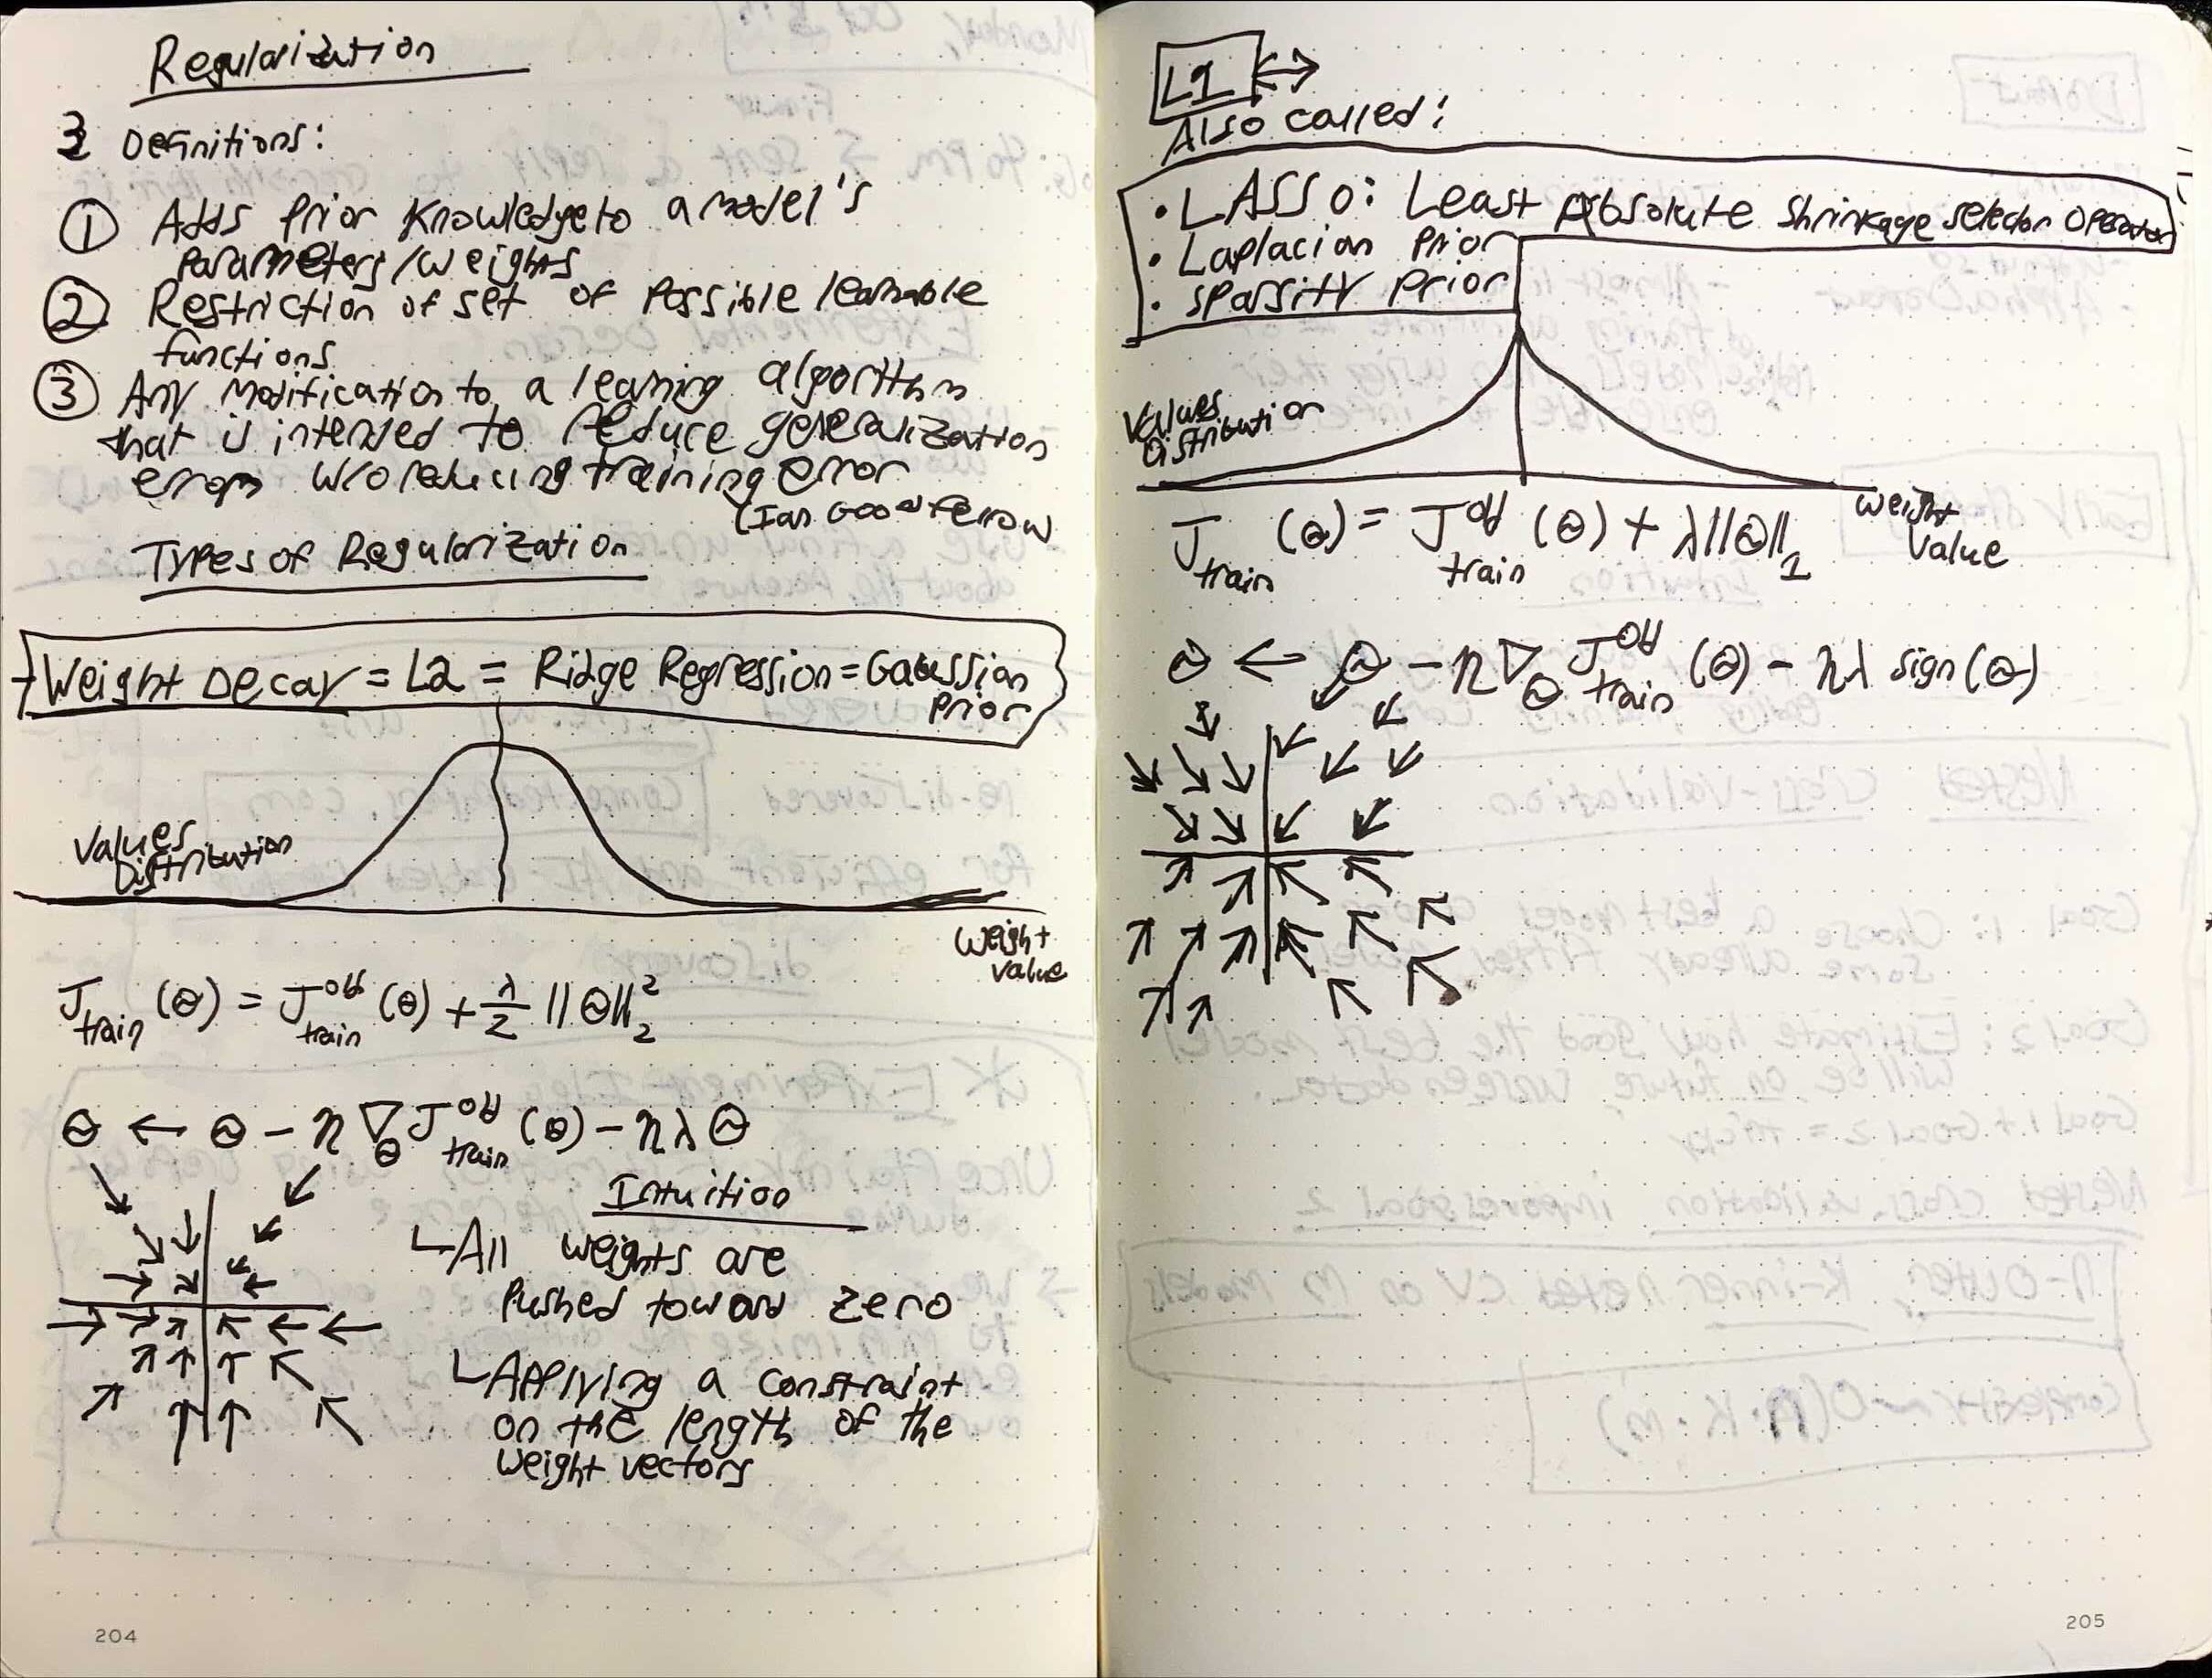 Regularization
3 Definitions:
① Adds Prior Knowledge to a model's
Parameters/weights
② Restriction of set of Possible learnable
functions
③ Any Modification to a learning algorithm
that is intended to reduce generalization
error w/o reducing training error
(Ian Goodfellow
Types of Regularization
Weight Decay = L2 = Ridge Regression = Gaussian
Prior
Values
Distribution
Weight
value
J_train (Θ) = J^obj_train (Θ) + λ/2 ||Θ||_2^2
Θ ← Θ - η ∇_Θ J^obj_train (Θ) - ηλΘ
Intuition
All weights are
Pushed toward zero
Applying a constraint
on the length of the
weight vectors
204
L1 ↔
Also called:
• LASSO: Least Absolute Shrinkage Selector Operator
• Laplacian Prior
• Sparsity Prior
Values
Distribution
weight
value
J_train (Θ) = J^obj_train (Θ) + λ||Θ||_1
Θ ← Θ - η∇_Θ J^obj_train (Θ) - ηλ sign(Θ)
205